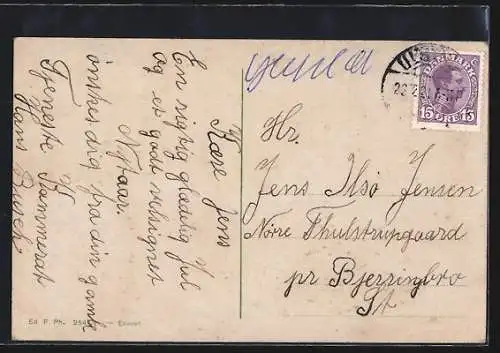 Kære Jens
En rigtig glædelig Jul
og et godt velsignet
Nyaar.
ønskes dig fra din gamle
Tjeneste Kammerat
Hans Busch
Hr.
Jens Ilsø Jensen
Nørre Thulstrupgaard
pr Bjerringbro
St
DANMARK
15 ØRE 15
Ed. F. Ph.